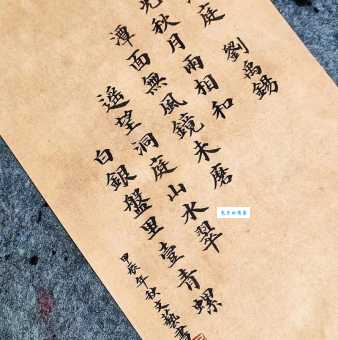 庭 劉禹錫
光秋月兩相和
潭面無風鏡未磨
遙望洞庭山水翠
白銀盤里壹青螺
甲辰年秋文藝書